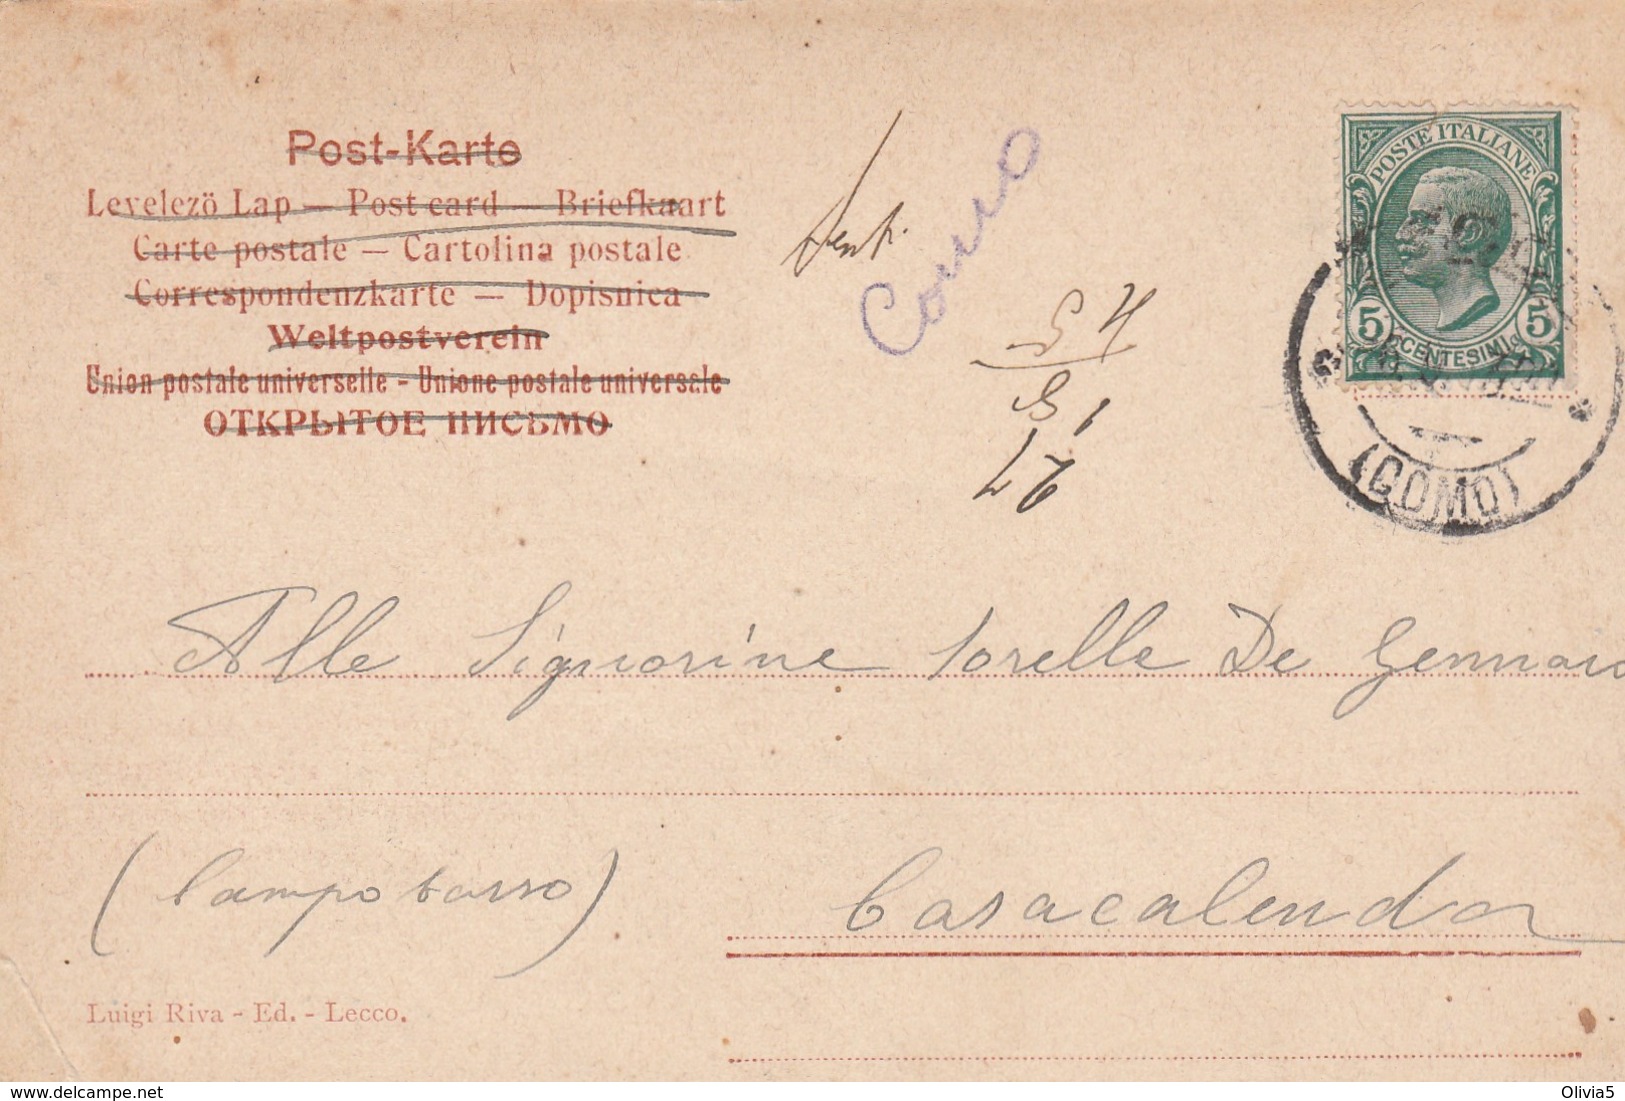 Post-Karte
Levelezö Lap — Post card — Briefkaart
Carte postale — Cartolina postale
Correspondenzkarte — Dopisnica
Weltpostverein
Union postale universelle - Unione postale universale
ОТКРЫТОЕ ПИСЬМО
Como
POSTE ITALIANE
5 CENTESIMI 5
(COMO)
Alle Signorine sorelle De Gennaro
(Campobasso)
Casacalenda
Luigi Riva - Ed. - Lecco.
Olivia5